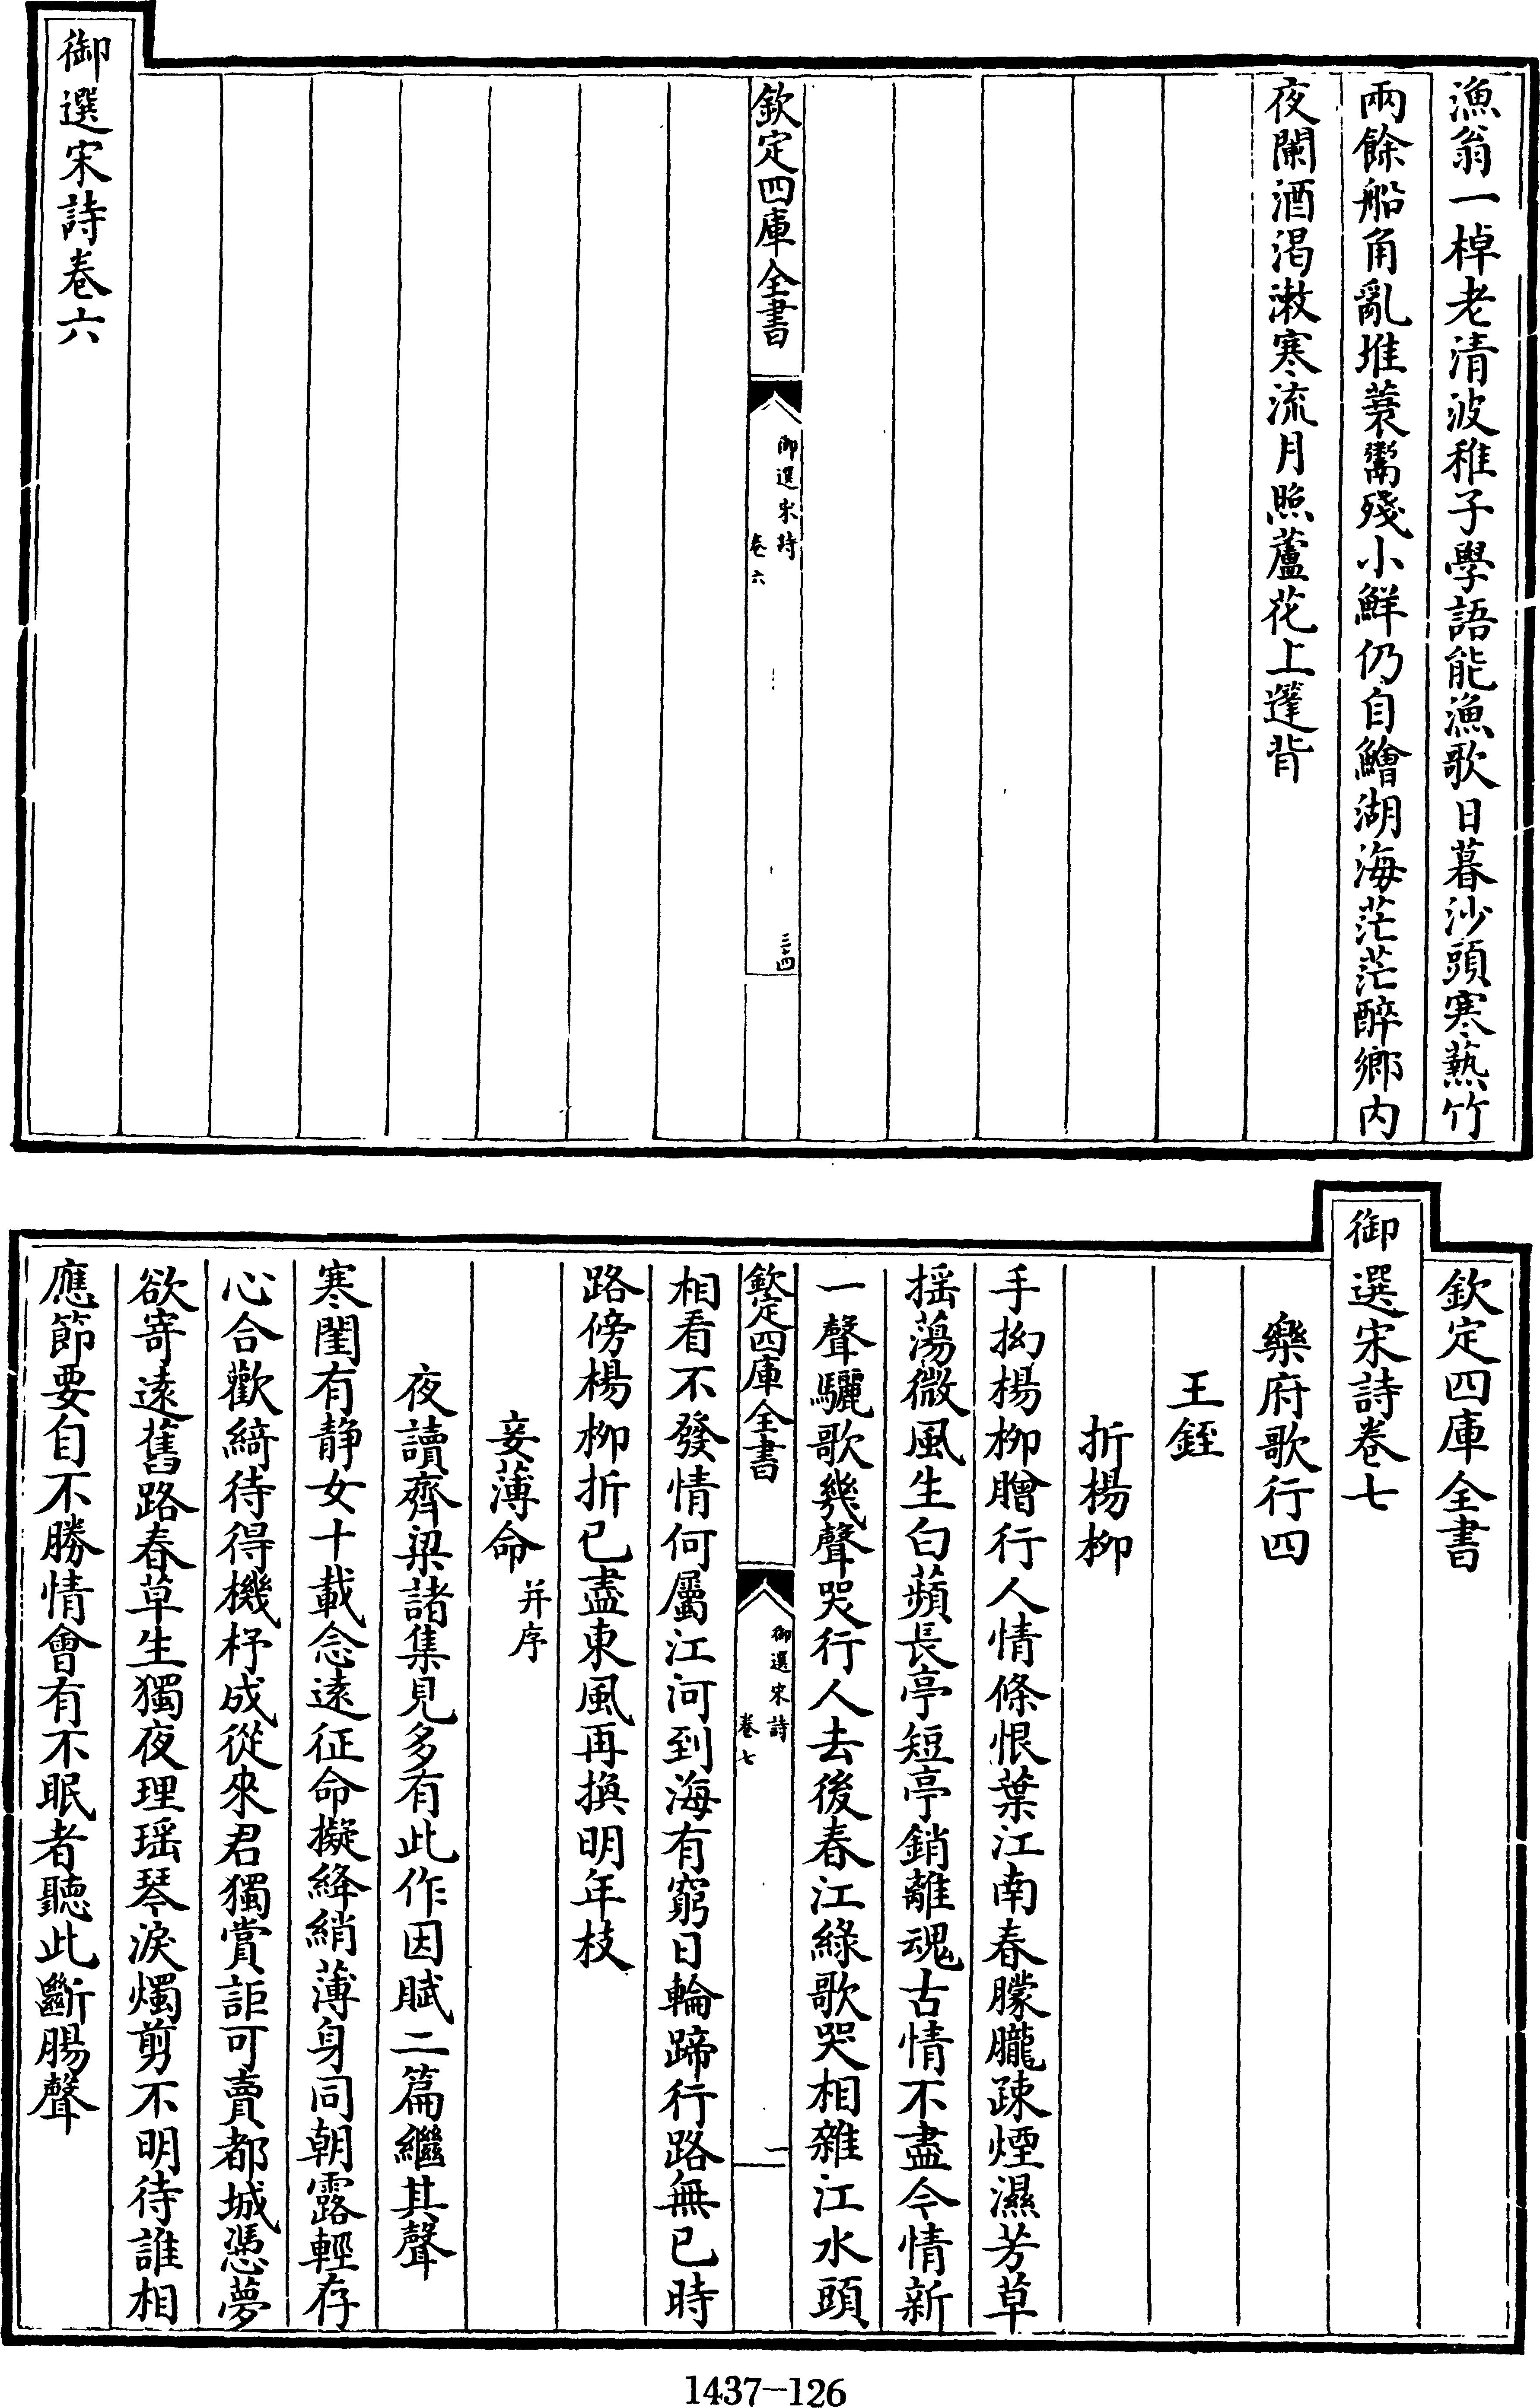 漁翁一棹老清波稚子學語能漁歌日暮沙頭寒爇竹
兩餘船角亂堆蓑鬻殘小鮮仍自鱠湖海茫茫醉鄉内
夜闌酒渴漱寒流月照蘆花上篷背
欽定四庫全書
御選宋詩
卷六
三十四
御選宋詩卷六
欽定四庫全書
御選宋詩卷七
樂府歌行四
王銍
折楊柳
手拗楊柳贈行人情條恨葉江南春朦朧疎煙濕芳草
摇蕩微風生白蘋長亭短亭銷離魂古情不盡今情新
一聲驪歌幾聲哭行人去後春江綠歌哭相雜江水頭
欽定四庫全書
御選宋詩
卷七
一
相看不發情何屬江河到海有窮日輪蹄行路無已時
路傍楊柳折已盡東風再換明年枝
妾薄命并序
夜讀齊梁諸集見多有此作因賦二篇繼其聲
寒閨有静女十載念遠征命擬絳綃薄身同朝露輕存
心合歡綺待得機杼成從來君獨賞詎可賣都城憑夢
欲寄遠舊路春草生獨夜理瑶琴淚燭剪不明待誰相
應節要自不勝情會有不眠者聽此斷腸聲
1437—126